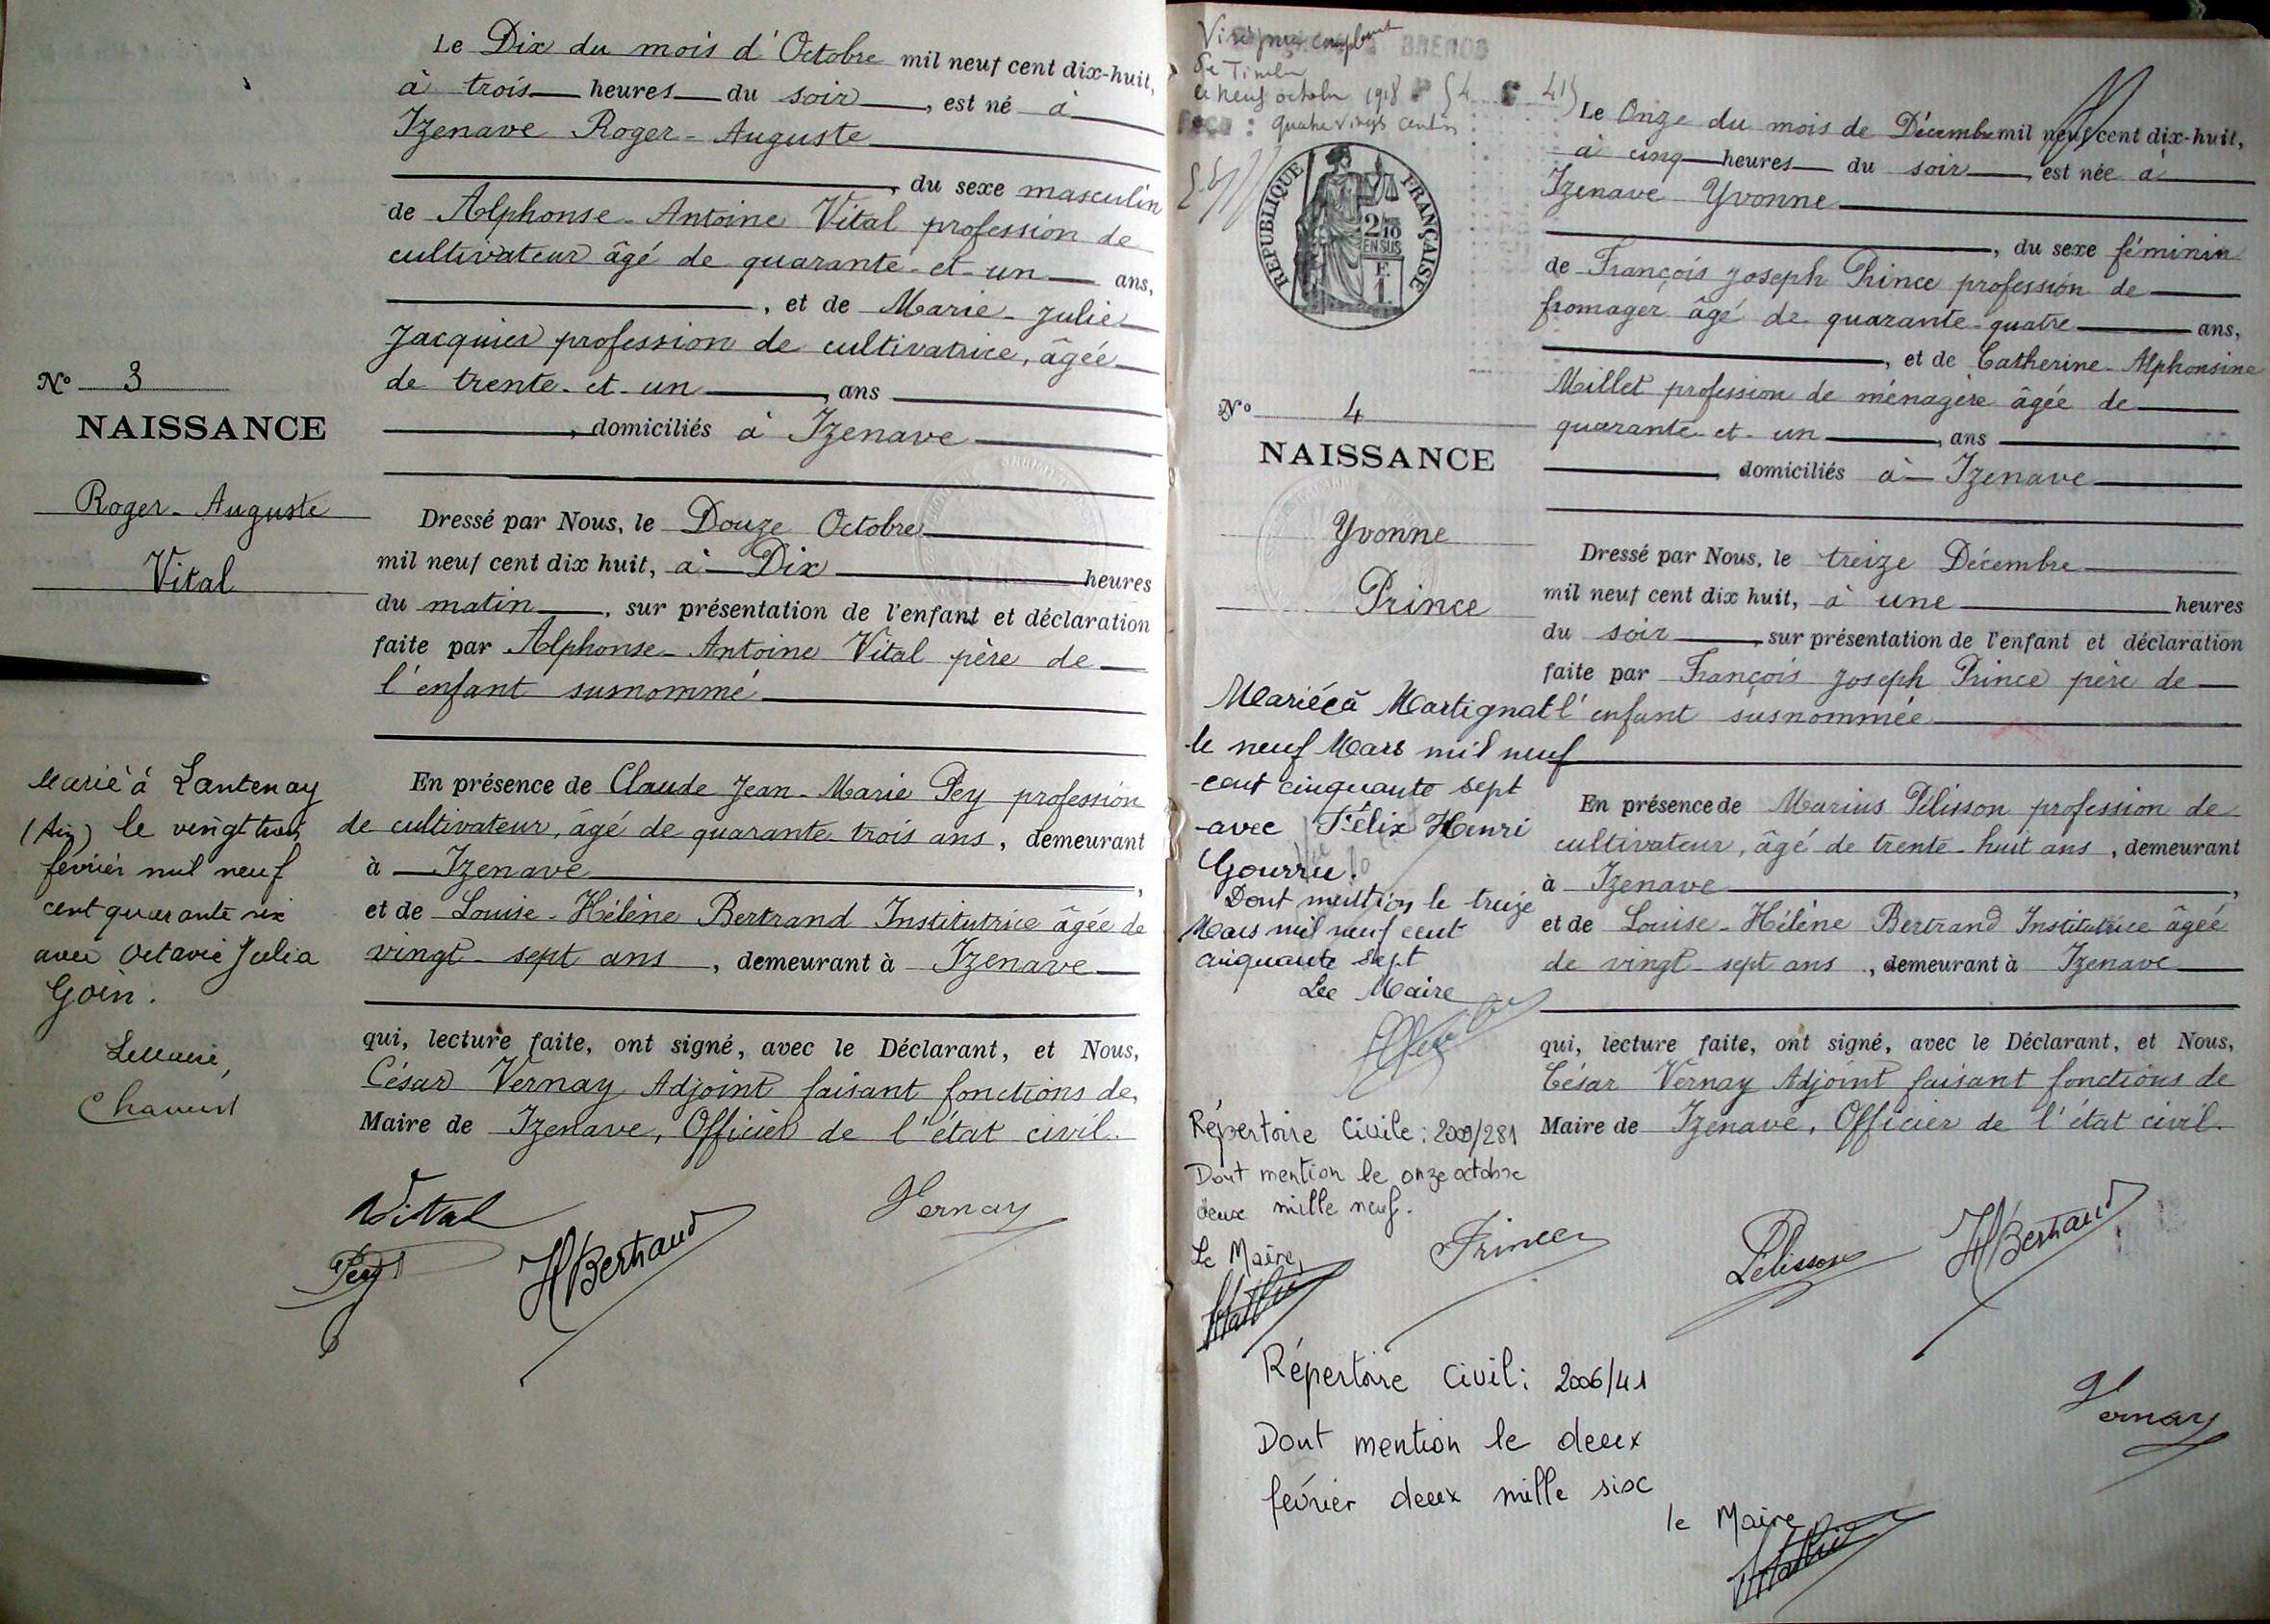 Le Dix du mois d'Octobre mil neuf cent dix-huit,
à trois heures du soir, est né à
Izenave Roger-Auguste
, du sexe masculin
de Alphonse-Antoine Vital profession de
cultivateur âgé de quarante-et-un ans,
, et de Marie-Julie
Jacquier profession de cultivatrice, âgée
de trente-et-un, ans
, domiciliés à Izenave
N° 3
NAISSANCE
Roger-Auguste
Vital
Dressé par Nous, le Douze Octobre
mil neuf cent dix huit, à Dix heures
du matin, sur présentation de l'enfant et déclaration
faite par Alphonse-Antoine Vital père de
l'enfant susnommé
Marié à Lantenay
(Ain) le vingt trois
février mil neuf
cent quarante six
avec Octavie Julia
Goin.
Le Maire,
En présence de Claude Jean-Marie Pey profession
de cultivateur, âgé de quarante-trois ans, demeurant
à Izenave,
et de Louise-Hélène Bertrand Institutrice âgée de
vingt-sept ans, demeurant à Izenave
qui, lecture faite, ont signé, avec le Déclarant, et Nous,
César Vernay Adjoint faisant fonctions de
Maire de Izenave, Officier de l'état civil.
Vital
Vernay
Pey
HBertrand
Visé pour
de Timbre
le neuf octobre 1918
quatre vingts centimes
RÉPUBLIQUE FRANÇAISE
2/10
EN SUS
F.
1.
Le Onze du mois de Décembre mil neuf cent dix-huit,
à cinq heures du soir, est née à
Izenave Yvonne
, du sexe féminin
de François Joseph Prince profession de
fromager âgé de quarante-quatre ans,
, et de Catherine-Alphonsine
Millet profession de ménagère âgée de
quarante-et-un, ans
, domiciliés à Izenave
N° 4
NAISSANCE
Yvonne
Prince
Dressé par Nous, le treize Décembre
mil neuf cent dix huit, à une heures
du soir, sur présentation de l'enfant et déclaration
faite par François Joseph Prince père de
l'enfant susnommée
Mariée à Martignat
le neuf Mars mil neuf
cent cinquante sept
avec Félix Henri
Gourru.
Dont mention le treize
Mars mil neuf cent
cinquante sept
Le Maire
En présence de Marius Pélisson profession de
cultivateur, âgé de trente-huit ans, demeurant
à Izenave,
et de Louise-Hélène Bertrand Institutrice âgée
de vingt-sept ans, demeurant à Izenave
qui, lecture faite, ont signé, avec le Déclarant, et Nous,
César Vernay Adjoint faisant fonctions de
Maire de Izenave, Officier de l'état civil.
Répertoire Civile : 2009/281
Dont mention le onze octobre
deux mille neuf.
Le Maire,
Prince
Pélisson
HBertrand
Vernay
Répertoire Civil : 2006/41
Dont mention le deux
février deux mille six
le Maire